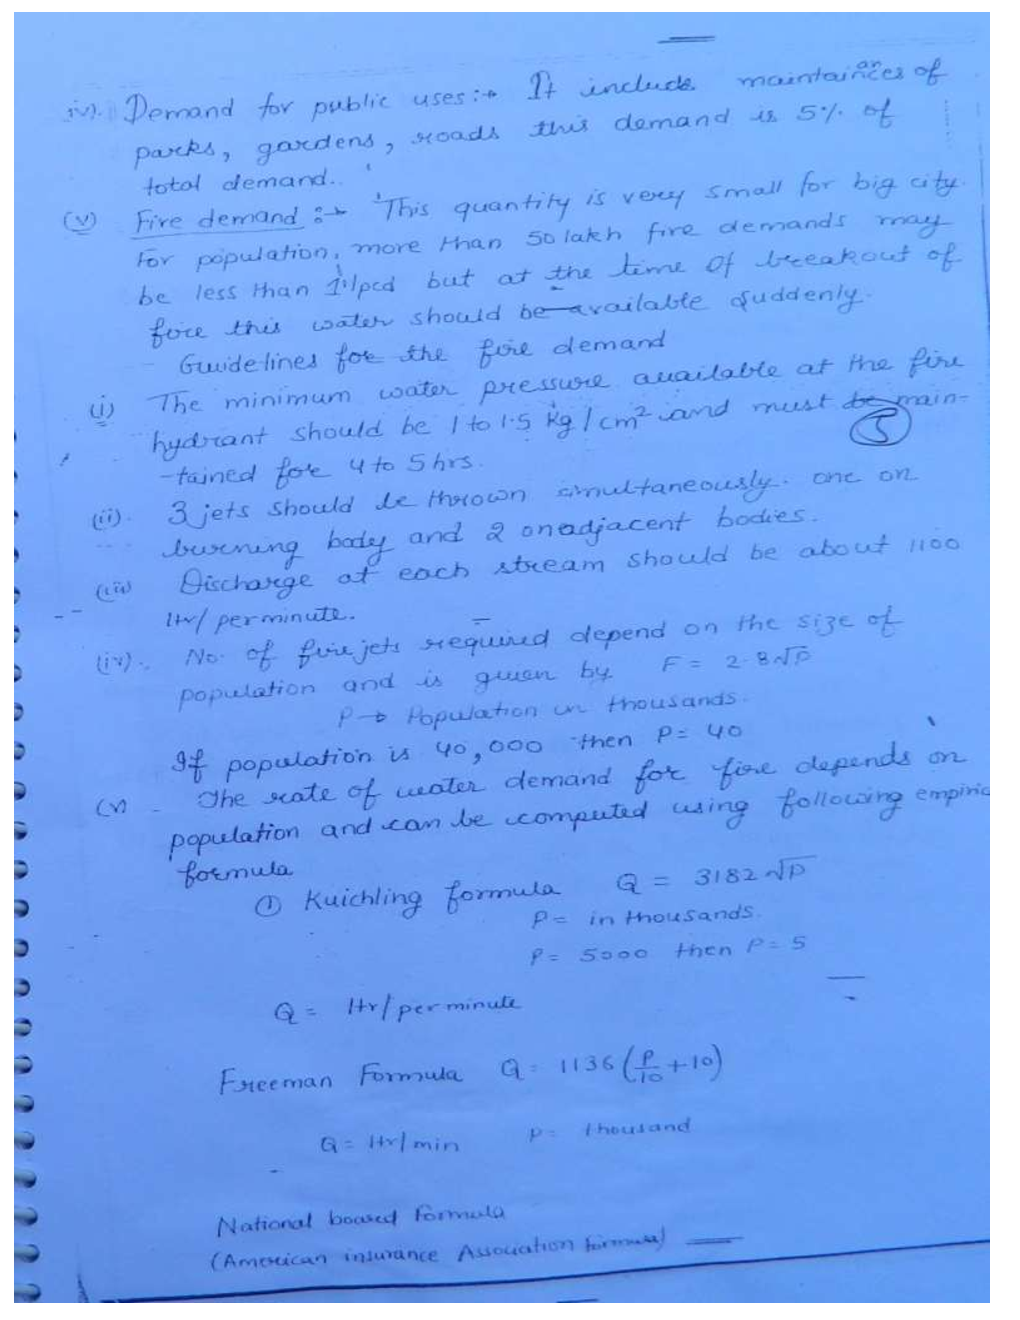 iv). Demand for public uses :→ It include maintainances of
parks, gardens, roads this demand is 5% of
total demand..
(v) Fire demand :→ This quantity is very small for big city.
For population, more than 50 lakh fire demands may
be less than 1 lpcd but at the time of breakout of
fire this water should be available suddenly.
- Guidelines for the fire demand
(i) The minimum water pressure available at the fire
hydrant should be 1 to 1.5 kg/cm² and must be main-
-tained for 4 to 5 hrs.
5
(ii). 3 jets should be thrown simultaneously. one on
burning body and 2 on adjacent bodies.
(iii) Discharge at each stream should be about 1100
ltr/per minute.
(iv). No. of fire jets required depend on the size of
population and is given by F = 2.8√P
P → Population in thousands.
If population is 40,000 then P = 40
(v) - The rate of water demand for fire depends on
population and can be computed using following empiric
formula
① Kuichling formula Q = 3182 √P
P = in thousands.
P = 5000 then P = 5
Q = ltr/per minute
Freeman Formula Q = 1136 (P/10 + 10)
Q = ltr/min P = thousand
National board formula
(American insurance Association formula)